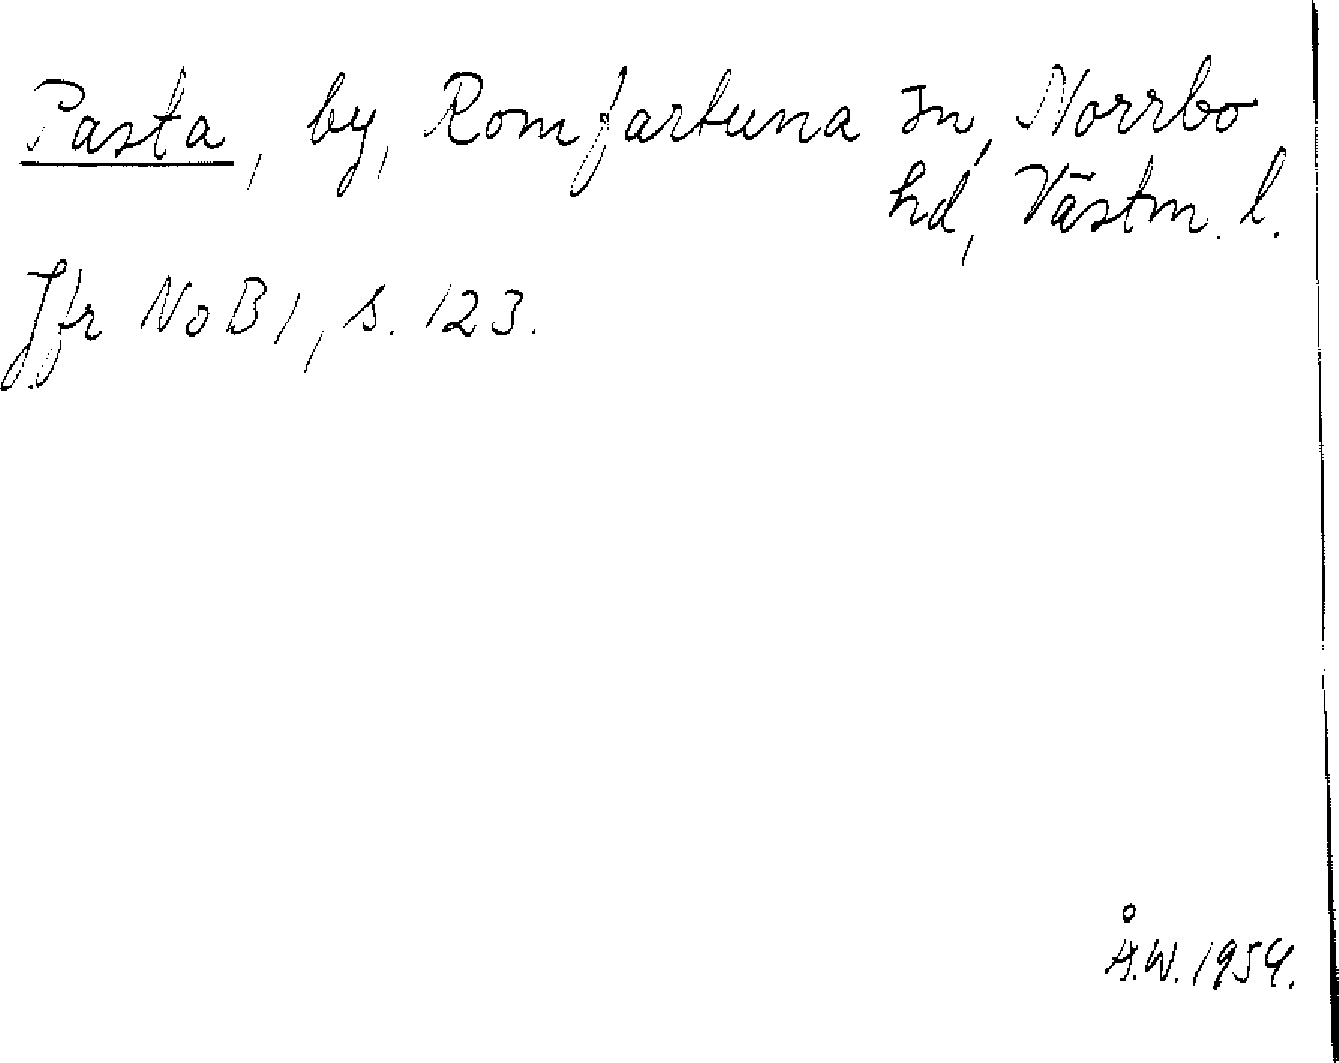 Pasta, by, Romfartuna sn, Norrbo
hd, Västm. l.
Jfr NoB 1, s. 123.
Å.W. 1954.